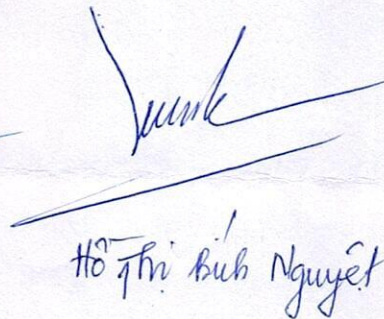 Hồ Thị Bích Nguyệt